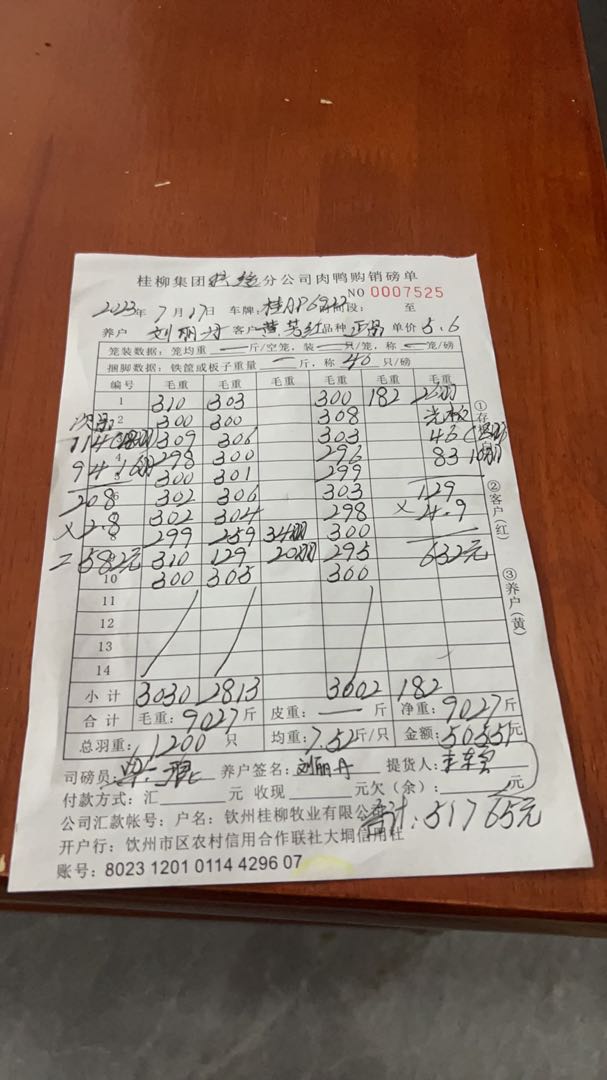 桂柳集团 分公司肉鸭购销磅单
NO 0007525
2023年 7月17日 车牌:桂AP6912 阶段: 至
养户 刘丽丹 客户 品种 正品 单价 5.6
笼装数据:笼均重 — 斤/空笼,装 — 只/笼,称 — 笼/磅
捆脚数据:铁筐或板子重量 — 斤,称 40 只/磅
编号 毛重 毛重 毛重 毛重 毛重 毛重
1 310 303 300 182
2 300 300 308
309 306 303 46
4 298 300 296 83
300 301 299
302 306 303 129
302 304 298 ×4.9
8 299 259 34羽 300
310 129 20羽 295 632元
10 300 305 300
11
12
13
14
次品
114
94
208
×2.8
=582元
小计 3030 2813 3002 182
合计 毛重:9027斤 皮重:— 斤 净重:9027斤
总羽重:1200只 均重:7.52斤/只 金额:50551元
司磅员: 养户签名:刘丽丹 提货人:
付款方式:汇 元 收现 元欠(余): 元
公司汇款帐号:户名:钦州桂柳牧业有限公司
合计:51765元
开户行:钦州市区农村信用合作联社大垌信用社
账号:8023 1201 0114 4296 07
①存根
②客户(红)
③养户(黄)